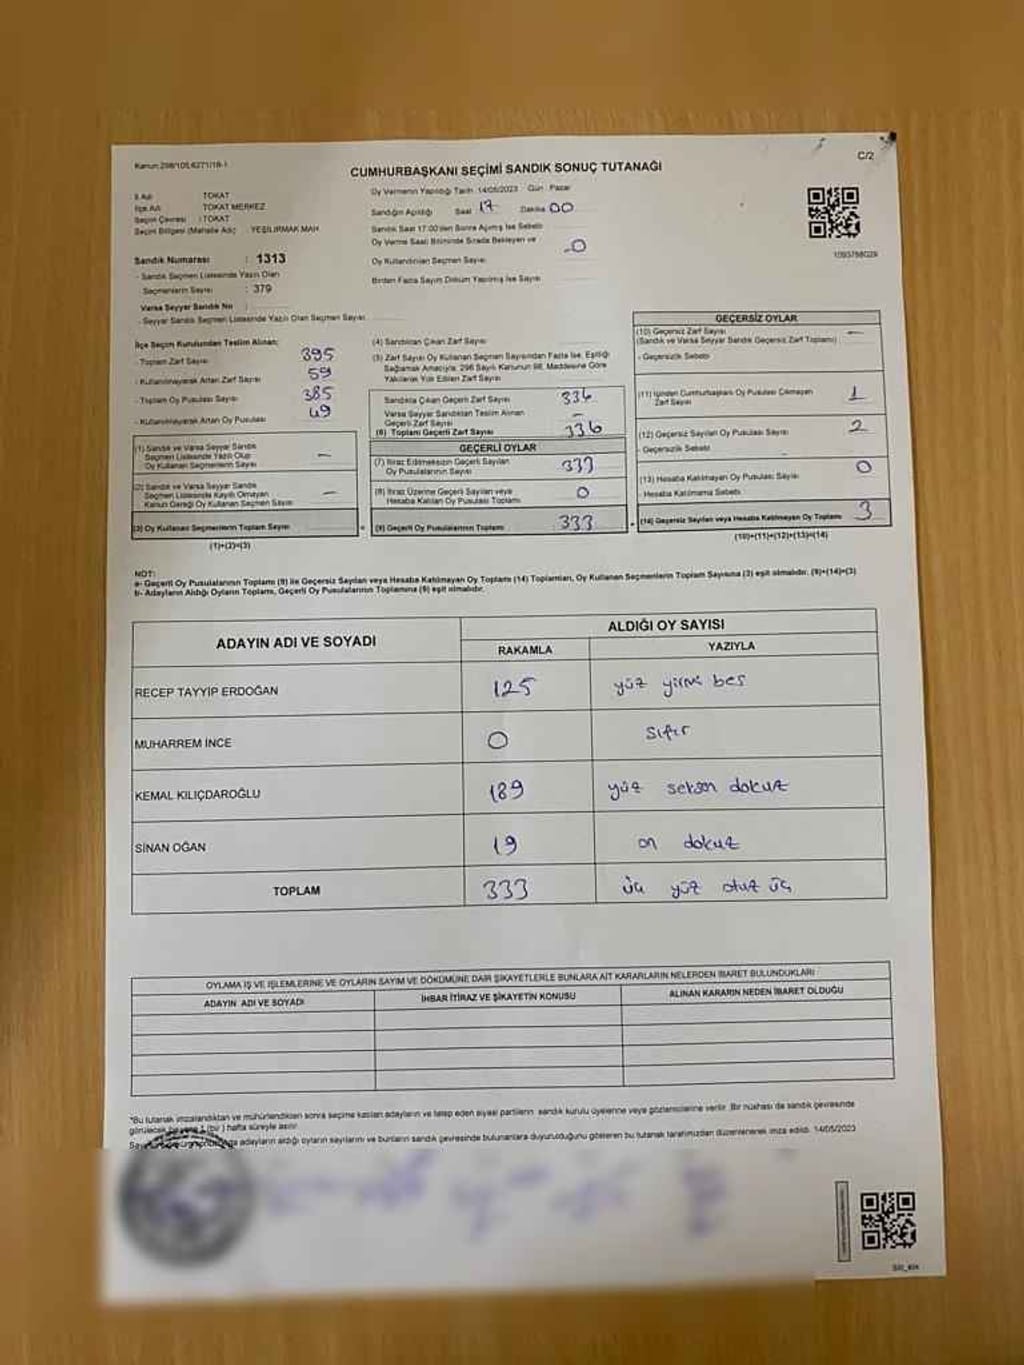 Kanun:298/105,6271/18-1
C/2
CUMHURBAŞKANI SEÇİMİ SANDIK SONUÇ TUTANAĞI
İl Adı : TOKAT
İlçe Adı : TOKAT MERKEZ
Seçim Çevresi : TOKAT
Seçim Bölgesi (Mahalle Adı) : YEŞİLIRMAK MAH.
Sandık Numarası : 1313
- Sandık Seçmen Listesinde Yazılı Olan
Seçmenlerin Sayısı : 379
Varsa Seyyar Sandık No :
- Seyyar Sandık Seçmen Listesinde Yazılı Olan Seçmen Sayısı
Oy Vermenin Yapıldığı Tarih 14/05/2023 Gün : Pazar
Sandığın Açıldığı Saat 17 Dakika 00
Sandık Saat 17:00'den Sonra Açılmış İse Sebebi
Oy Verme Saati Bitiminde Sırada Bekleyen ve
Oy Kullandırılan Seçmen Sayısı 0
Birden Fazla Sayım Döküm Yapılmış İse Sayısı
İlçe Seçim Kurulundan Teslim Alınan;
- Toplam Zarf Sayısı 395
- Kullanılmayarak Artan Zarf Sayısı 59
- Toplam Oy Pusulası Sayısı 385
- Kullanılmayarak Artan Oy Pusulası 49
(1) Sandık ve Varsa Seyyar Sandık
Seçmen Listesinde Yazılı Olup
Oy Kullanan Seçmenlerin Sayısı —
(2) Sandık ve Varsa Seyyar Sandık
Seçmen Listesinde Kayıtlı Olmayan
Kanun Gereği Oy Kullanan Seçmen Sayısı —
(3) Oy Kullanan Seçmenlerin Toplam Sayısı
(1)+(2)=(3)
(4) Sandıktan Çıkan Zarf Sayısı
(5) Zarf Sayısı Oy Kullanan Seçmen Sayısından Fazla İse, Eşitliği
Sağlamak Amacıyla; 298 Sayılı Kanunun 98. Maddesine Göre
Yakılarak Yok Edilen Zarf Sayısı
Sandıkta Çıkan Geçerli Zarf Sayısı 336
Varsa Seyyar Sandıktan Teslim Alınan
Geçerli Zarf Sayısı —
(6) Toplam Geçerli Zarf Sayısı 336
GEÇERLİ OYLAR
(7) İtiraz Edilmeksizin Geçerli Sayılan
Oy Pusulalarının Sayısı 333
(8) İtiraz Üzerine Geçerli Sayılan veya
Hesaba Katılan Oy Pusulası Toplamı 0
(9) Geçerli Oy Pusulalarının Toplamı 333
GEÇERSİZ OYLAR
(10) Geçersiz Zarf Sayısı
(Sandık ve Varsa Seyyar Sandık Geçersiz Zarf Toplamı) —
- Geçersizlik Sebebi
(11) İçinden Cumhurbaşkanı Oy Pusulası Çıkmayan
Zarf Sayısı 1
(12) Geçersiz Sayılan Oy Pusulası Sayısı 2
- Geçersizlik Sebebi
(13) Hesaba Katılmayan Oy Pusulası Sayısı 0
- Hesaba Katılmama Sebebi
(14) Geçersiz Sayılan veya Hesaba Katılmayan Oy Toplamı 3
(10)+(11)+(12)+(13)=(14)
NOT:
a- Geçerli Oy Pusulalarının Toplamı (9) ile Geçersiz Sayılan veya Hesaba Katılmayan Oy Toplamı (14) Toplamları, Oy Kullanan Seçmenlerin Toplam Sayısına (3) eşit olmalıdır. (9)+(14)=(3)
b- Adayların Aldığı Oyların Toplamı, Geçerli Oy Pusulalarının Toplamına (9) eşit olmalıdır.
ADAYIN ADI VE SOYADI
ALDIĞI OY SAYISI
RAKAMLA YAZIYLA
RECEP TAYYİP ERDOĞAN 125 yüz yirmi beş
MUHARREM İNCE 0 sıfır
KEMAL KILIÇDAROĞLU 189 yüz seksen dokuz
SİNAN OĞAN 19 on dokuz
TOPLAM 333 üç yüz otuz üç
OYLAMA İŞ VE İŞLEMLERİNE VE OYLARIN SAYIM VE DÖKÜMÜNE DAİR ŞİKAYETLERLE BUNLARA AİT KARARLARIN NELERDEN İBARET BULUNDUKLARI
ADAYIN ADI VE SOYADI
İHBAR İTİRAZ VE ŞİKAYETİN KONUSU
ALINAN KARARIN NEDEN İBARET OLDUĞU
*Bu tutanak imzalandıktan ve mühürlendikten sonra seçime katılan adayların ve talep eden siyasi partilerin sandık kurulu üyelerine veya gözlemcilerine verilir. Bir nüshası da sandık çevresinde
görülecek bir yere 1 (bir) hafta süreyle asılır.
adayların aldığı oyların sayılarını ve bunların sandık çevresinde bulunanlara duyurulduğunu gösteren bu tutanak tarafımızdan düzenlenerek imza edildi. 14/05/2023